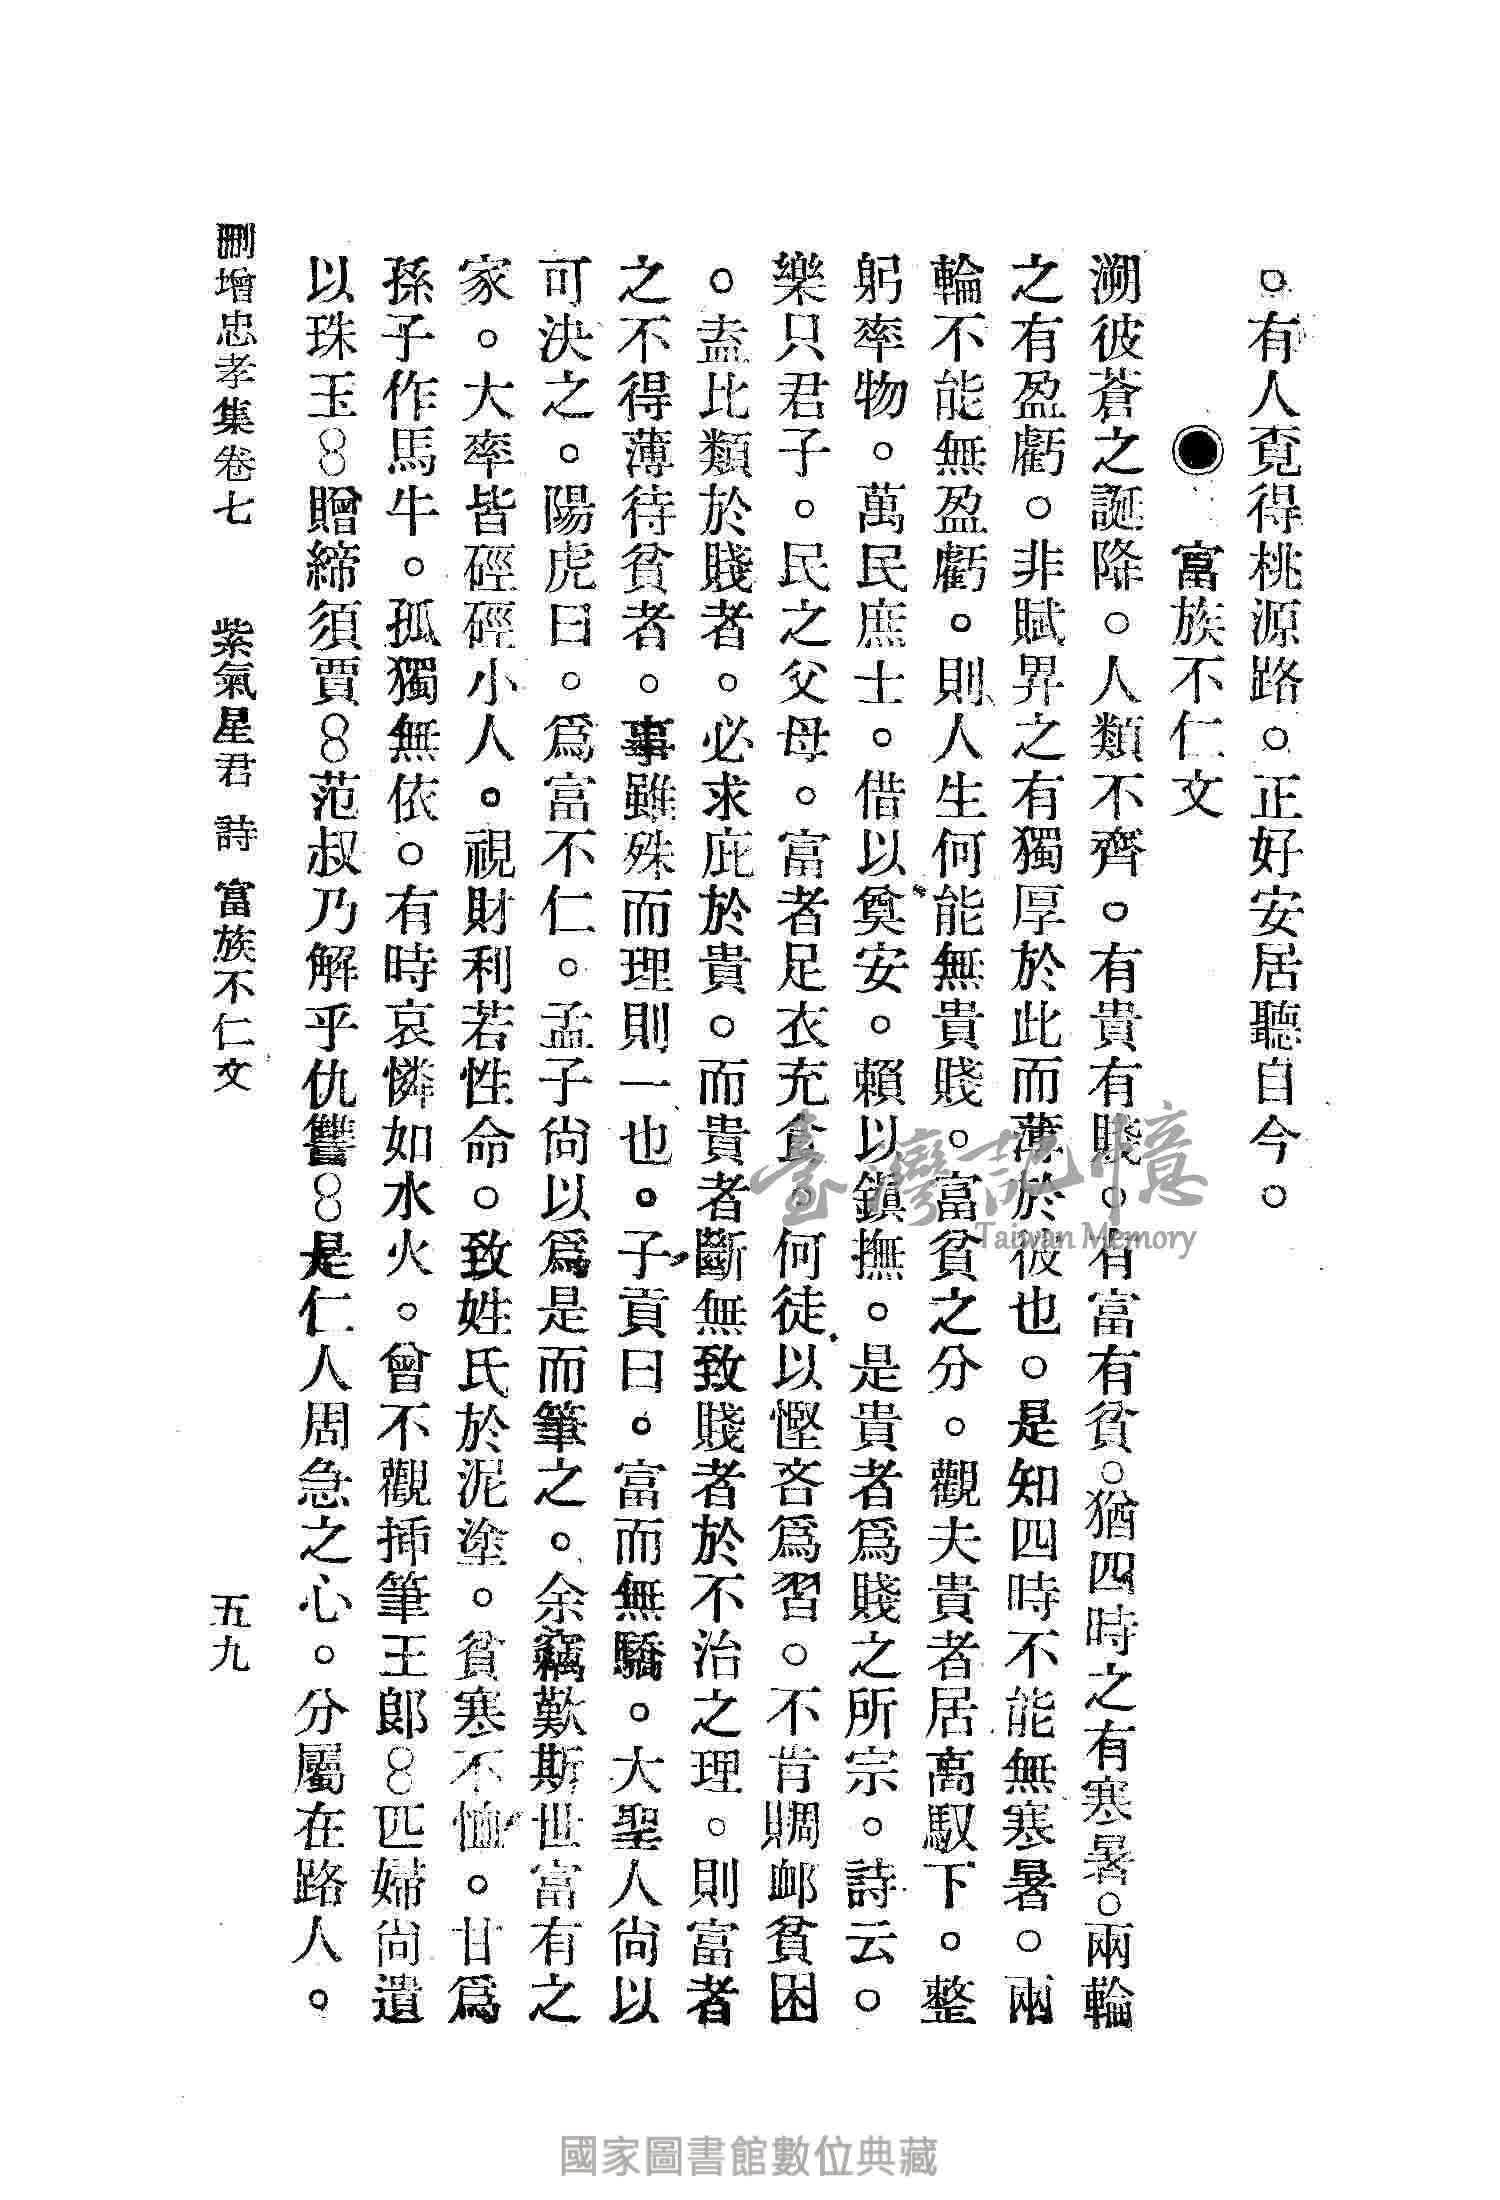 。有人覔得桃源路。正好安居聽自今。
◉　富族不仁文
溯彼蒼之誕降。人類不齊。有貴有賤。有富有貧。猶四時之有寒暑。兩輪
之有盈虧。非賦畀之有獨厚於此而薄於彼也。是知四時不能無寒暑。兩
輪不能無盈虧。則人生何能無貴賤。富貧之分。觀夫貴者居高馭下。整
躬率物。萬民庶士。借以奠安。賴以鎮撫。是貴者為賤之所宗。詩云。
樂只君子。民之父母。富者足衣充食。何徒以慳吝爲習。不肯賙卹貧困
。盍比類於賤者。必求庇於貴。而貴者斷無致賤者於不治之理。則富者
之不得薄待貧者。事雖殊而理則一也。子貢曰。富而無驕。大聖人尙以
可決之。陽虎曰。爲富不仁。孟子尙以爲是而筆之。余竊歎斯世富有之
家。大率皆硜硜小人。視財利若性命。致姓氏於泥塗。貧寒不恤。甘爲
孫子作馬牛。孤獨無依。有時哀憐如水火。曾不觀揷筆王郞。匹婦尙遺
以珠玉。贈綈須賈。范叔乃解乎仇讐。是仁人周急之心。分屬在路人。
刪增忠孝集卷七　紫氣星君　詩　富族不仁文　五九
臺灣記憶
Taiwan Memory
國家圖書館數位典藏